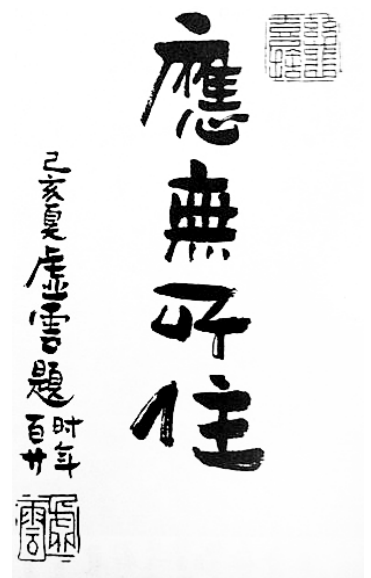 應無所住
己亥夏虛雲題
时年
百廿
虛雲